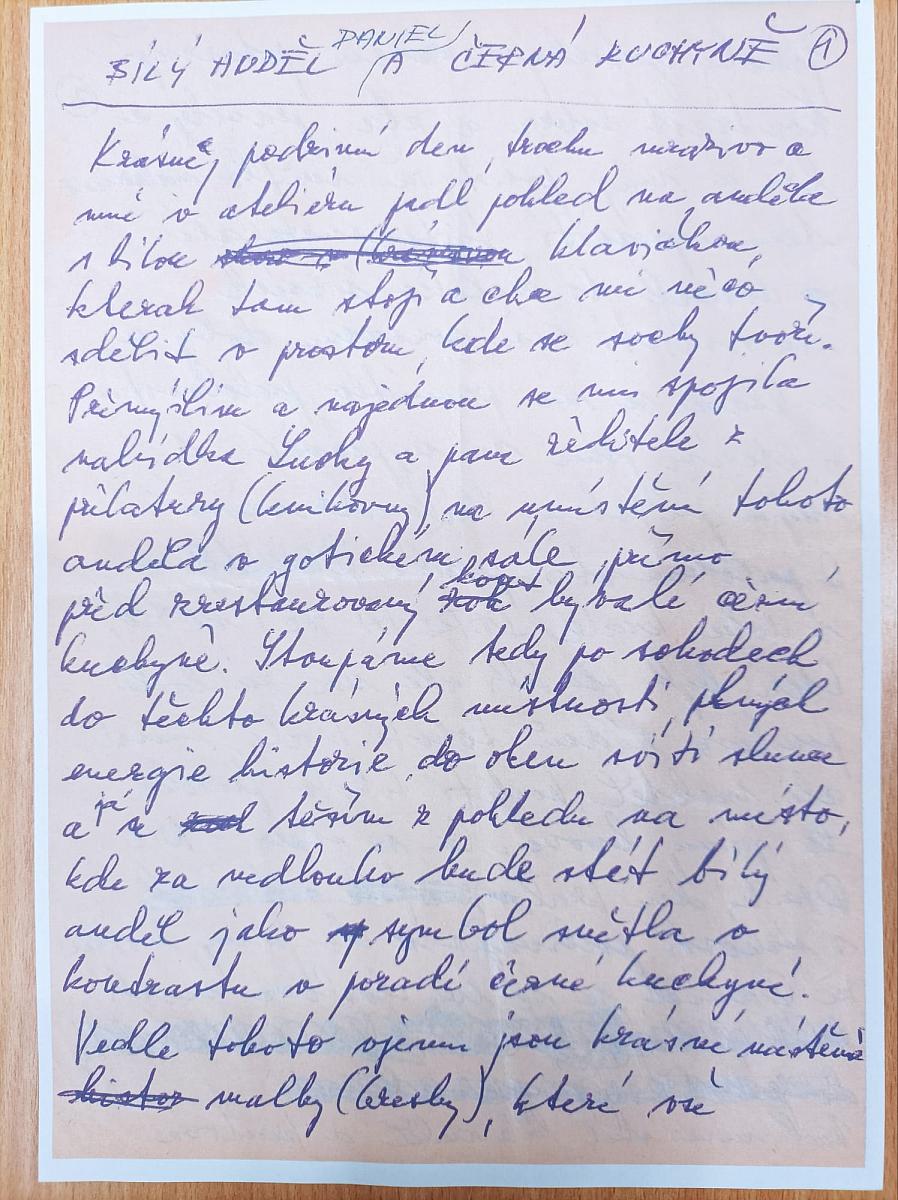 BÍLÝ ANDĚL DANIEL A ČERNÁ KUCHYNĚ 1
Krásný, podzimní den, trochu mrazivo a
mně v ateliéru padl pohled na anděla
s bílou klavičkou,
kterak tam stojí a chce mi něco
sdělit v prostoru, kde se sochy tvoří.
Přemýšlím a najednou se mi spojila
nabídka Lucky a pana ředitele z
prelatury (knihovny) na umístění tohoto
anděla v gotickém sále, přímo
před zrestaurovaný kout bývalé černé
kuchyně. Stoupáme tedy po schodech
do těchto krásných místností, plných
energie historie, do oken svítí slunce
a já se těším z pohledu na místo,
kde za nedlouho bude stát bílý
anděl jako symbol světla v
kontrastu v pozadí černé kuchyně.
Vedle tohoto výjevu jsou krásné nástěnné
malby (kresby), které vše